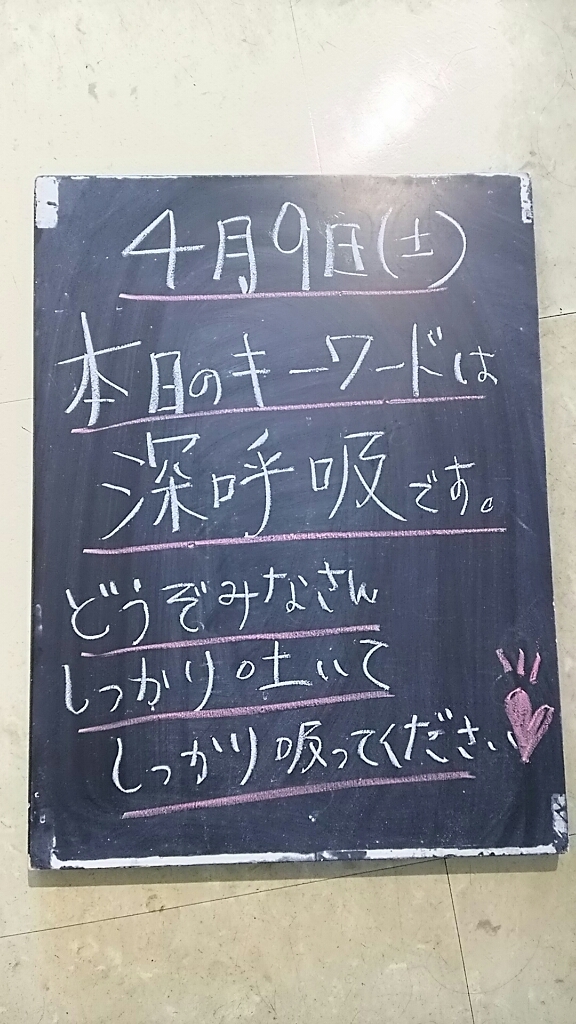 4月9日(土)
本日のキーワードは
深呼吸です。
どうぞみなさん
しっかり吐いて
しっかり吸ってください